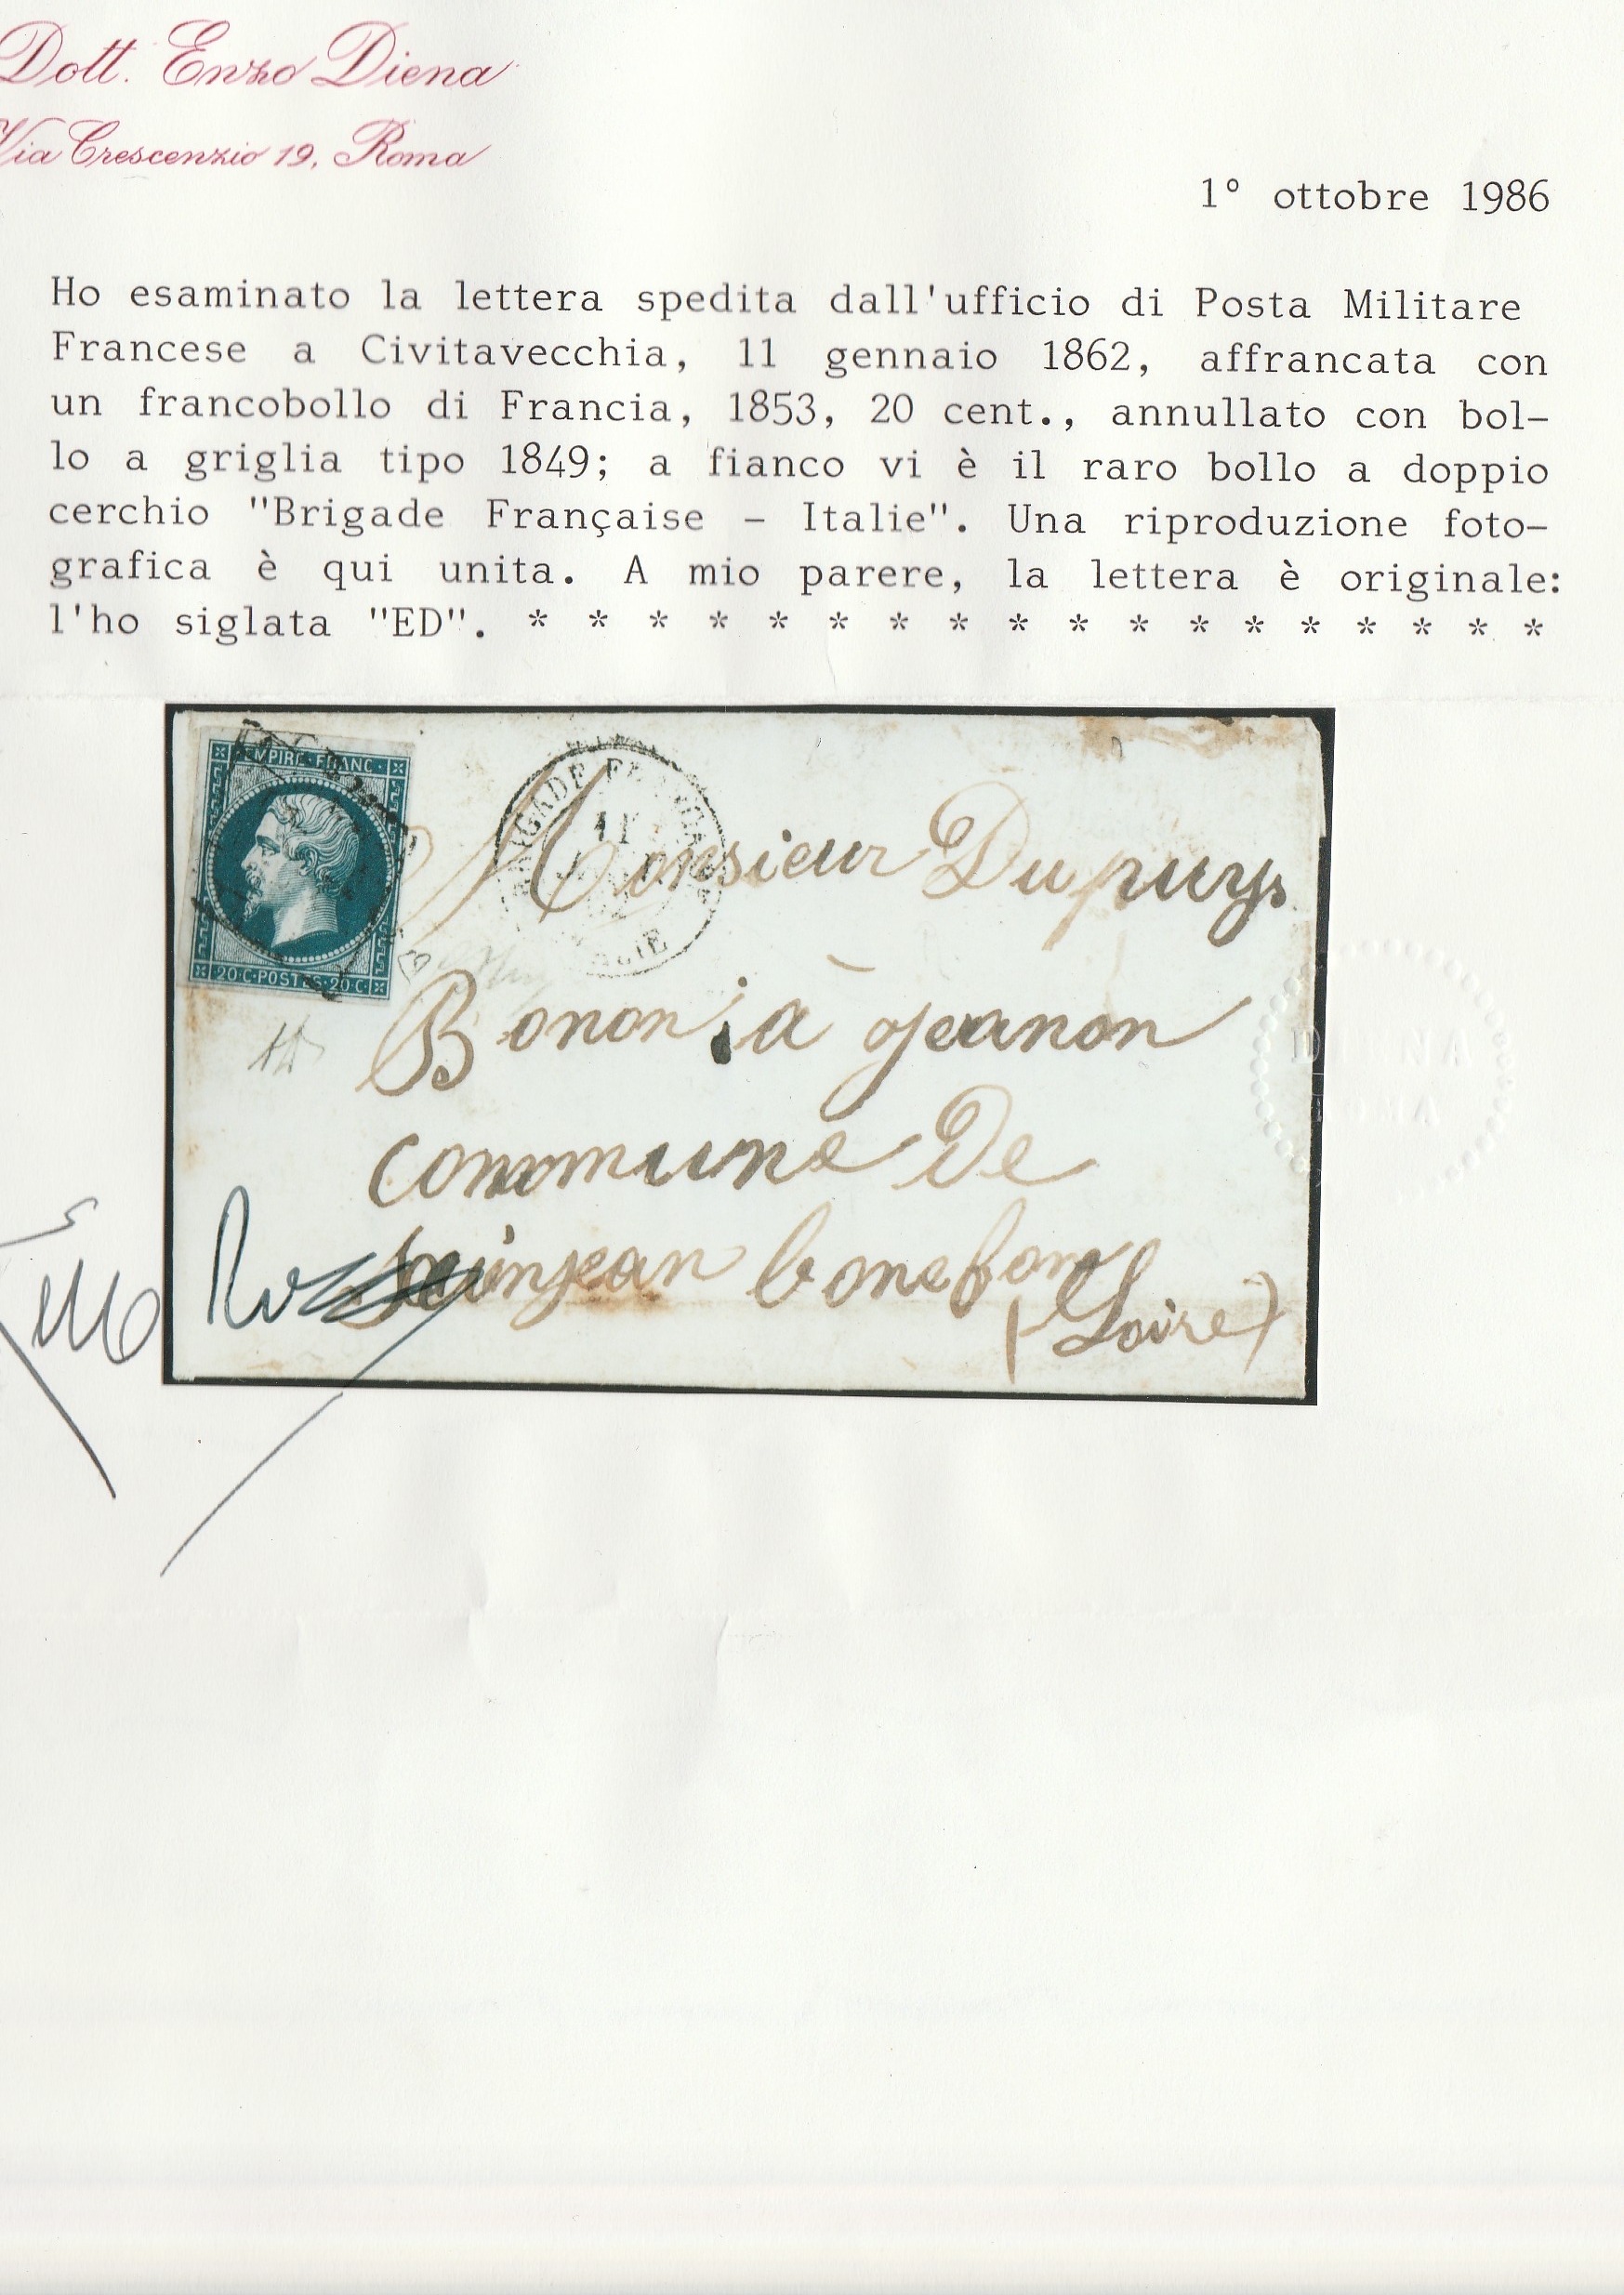 Dott. Enzo Diena
Via Crescenzio 19, Roma
1° ottobre 1986
Ho esaminato la lettera spedita dall'ufficio di Posta Militare
Francese a Civitavecchia, 11 gennaio 1862, affrancata con
un francobollo di Francia, 1853, 20 cent., annullato con bol-
lo a griglia tipo 1849; a fianco vi è il raro bollo a doppio
cerchio "Brigade Française - Italie". Una riproduzione foto-
grafica è qui unita. A mio parere, la lettera è originale:
l'ho siglata "ED". * * * * * * * * * * * * * * * * * *
EMPIRE·FRANC·
20·C·POSTES·20·C·
11
Monsieur Dupuys
Bonon à Jeanon
commune De
Seinjean bonefon
(Loire)
DIENA
ROMA